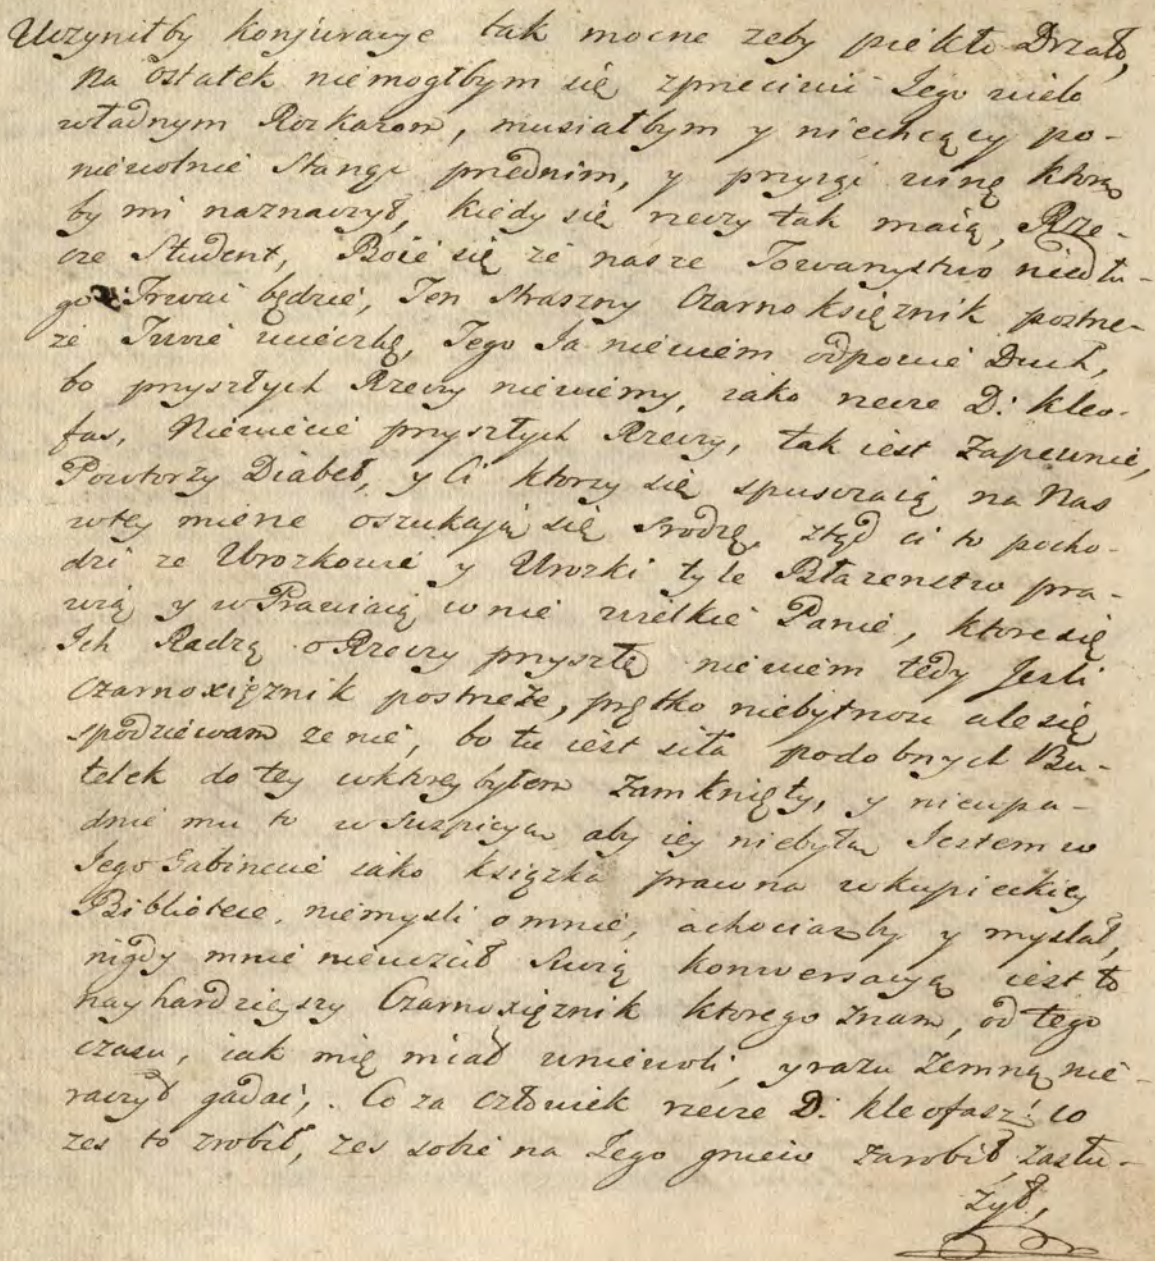 Uczyniłby konjuracye tak mocne zeby piekło Drzało,
na ostatek niemogłbym się zprzeciwić Jego wielo
władnym Rozkazom, musiałbym y niechcący po-
niewolnie Stangć przednim, y przyiąć winę ktorą
by mi naznaczył, kiedy się rzeczy tak maią, Rze-
cze Student, Boie się że nasze Towarzystwo niedłu-
go Trwać będzie, Ten Straszny Czarnoksiężnik postrze-
że Twoie ucieczkę, Tego Ja niewiem odpowie Duch,
bo przyszłych Rzeczy niewiemy, iako rzecze D: Kleo-
fas, Niewiecie przyszłych Rzeczy, tak iest Zapewnie,
Powtorzy Diabeł, y Ci ktorzy się spuszczaią na Nas
wtey mierze oszukają się srodzę, ztąd ci to pocho-
dzi ze Wrozkowie y Wrozki tyle Błazenstw pra-
wią y wPrawiaią wnie wielkie Panie, ktore się
Ich Radzą o Rzeczy przyszłe niewiem tedy Jesli
Czarnoxiężnik postrzeże, prętko niebytnosc ale się
spodziewam ze nie, bo tu iest siła podobnych Bu-
telek do tey wktorey byłem Zamknięty, y nieupa-
dnie mu to w Suspicyą aby iey niebyło Jestem w
Jego Gabinecie iako książka prawna wkupieckiey
Bibliotece, niemysli omnie, achociazby y myslał,
nigdy mnie nieuczcił Swoią konwersacyą iest to
nayhardzieyszy Czarnoxiężnik ktorego Znam, od tego
czasu, iak mię miał wniewoli, yrazu Zemną nie-
raczył gadać,. Co za człowiek rzecze D. Kleofasz! co
zes to zrobił, zes sobie na Jego gniew zarobił, zasłu-
żył,